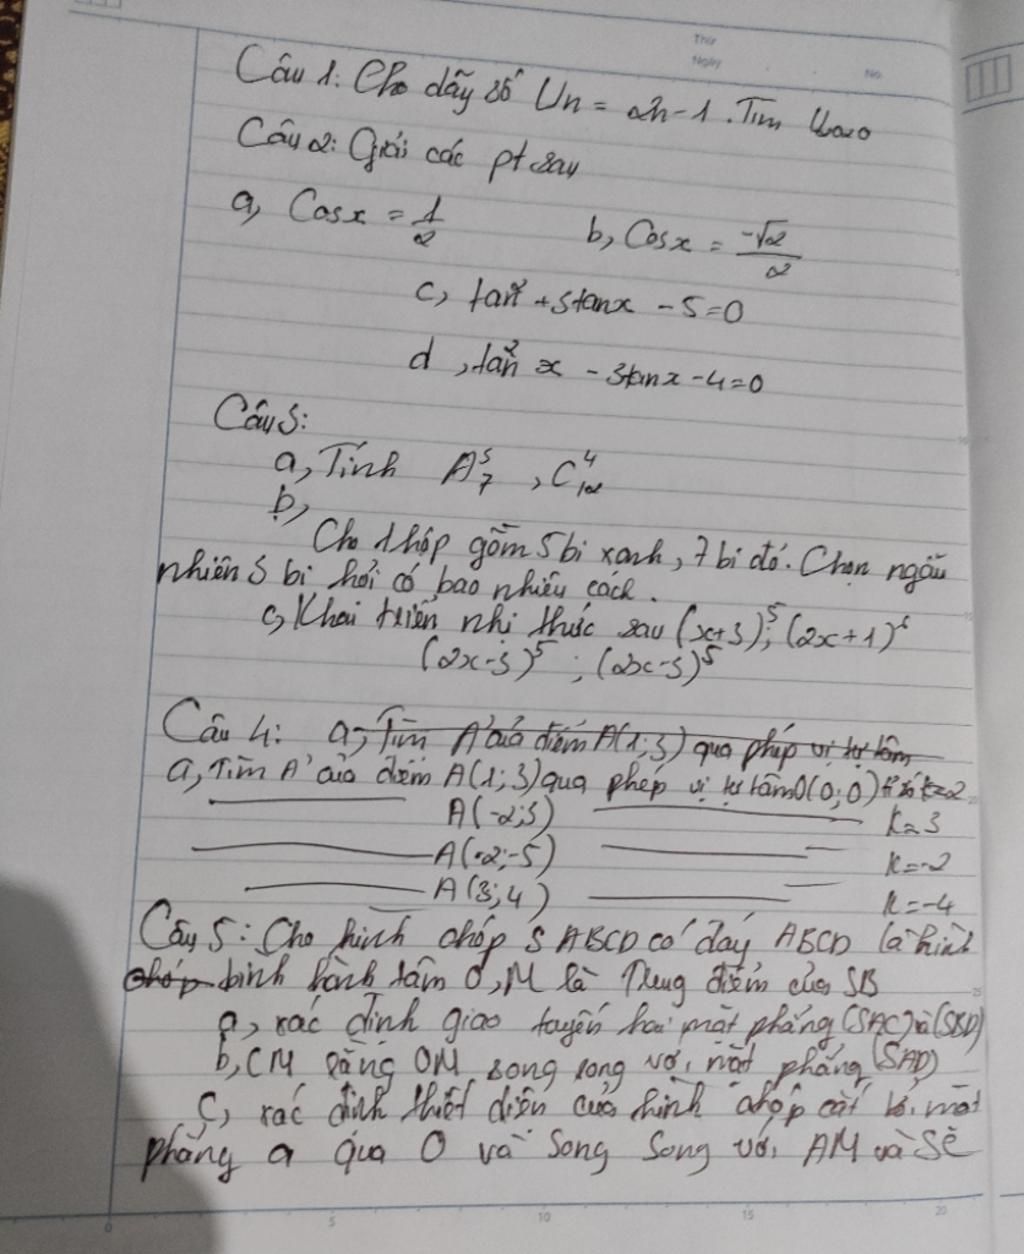 Thứ
Ngày
No.
Câu 1: Cho dãy số Un = 2n-1. Tìm U2020
Câu 2: Giải các pt sau
a, Cosx = 1/2 b, Cosx = -√2/2
c, tan² + 5tanx - 5 = 0
d, tan² x - 3tanx - 4 = 0
Câu 3:
a, Tính A⁵₇, C⁴₁₂
b,
Cho 1 hộp gồm 5 bi xanh, 7 bi đỏ. Chọn ngẫu
nhiên 3 bi hỏi có bao nhiêu cách.
c, Khai triển nhị thức sau (x+3)⁵; (2x+1)⁶
(2x-3)⁵ ; (2x-3)⁵
Câu 4: a, Tìm A' của điểm A(1;3) qua phép vị tự tâm
a, Tìm A' của điểm A(1;3) qua phép vị tự tâm O(0;0) tỉ số k=2
A(-2;3) k=3
A(-2;-5) k=-2
A(3;4) k=-4
Câu 5: Cho hình chóp S ABCD có đáy ABCD là hình
chóp bình hành tâm O, M là Trung điểm của SB
a, xác định giao tuyến hai mặt phẳng (SAC) và (SBD)
b, CM rằng OM song song với mặt phẳng (SAD)
c, xác định thiết diện của hình chóp cắt bởi mặt
phẳng a qua O và song song với AM và SC
0 5 10 15 20